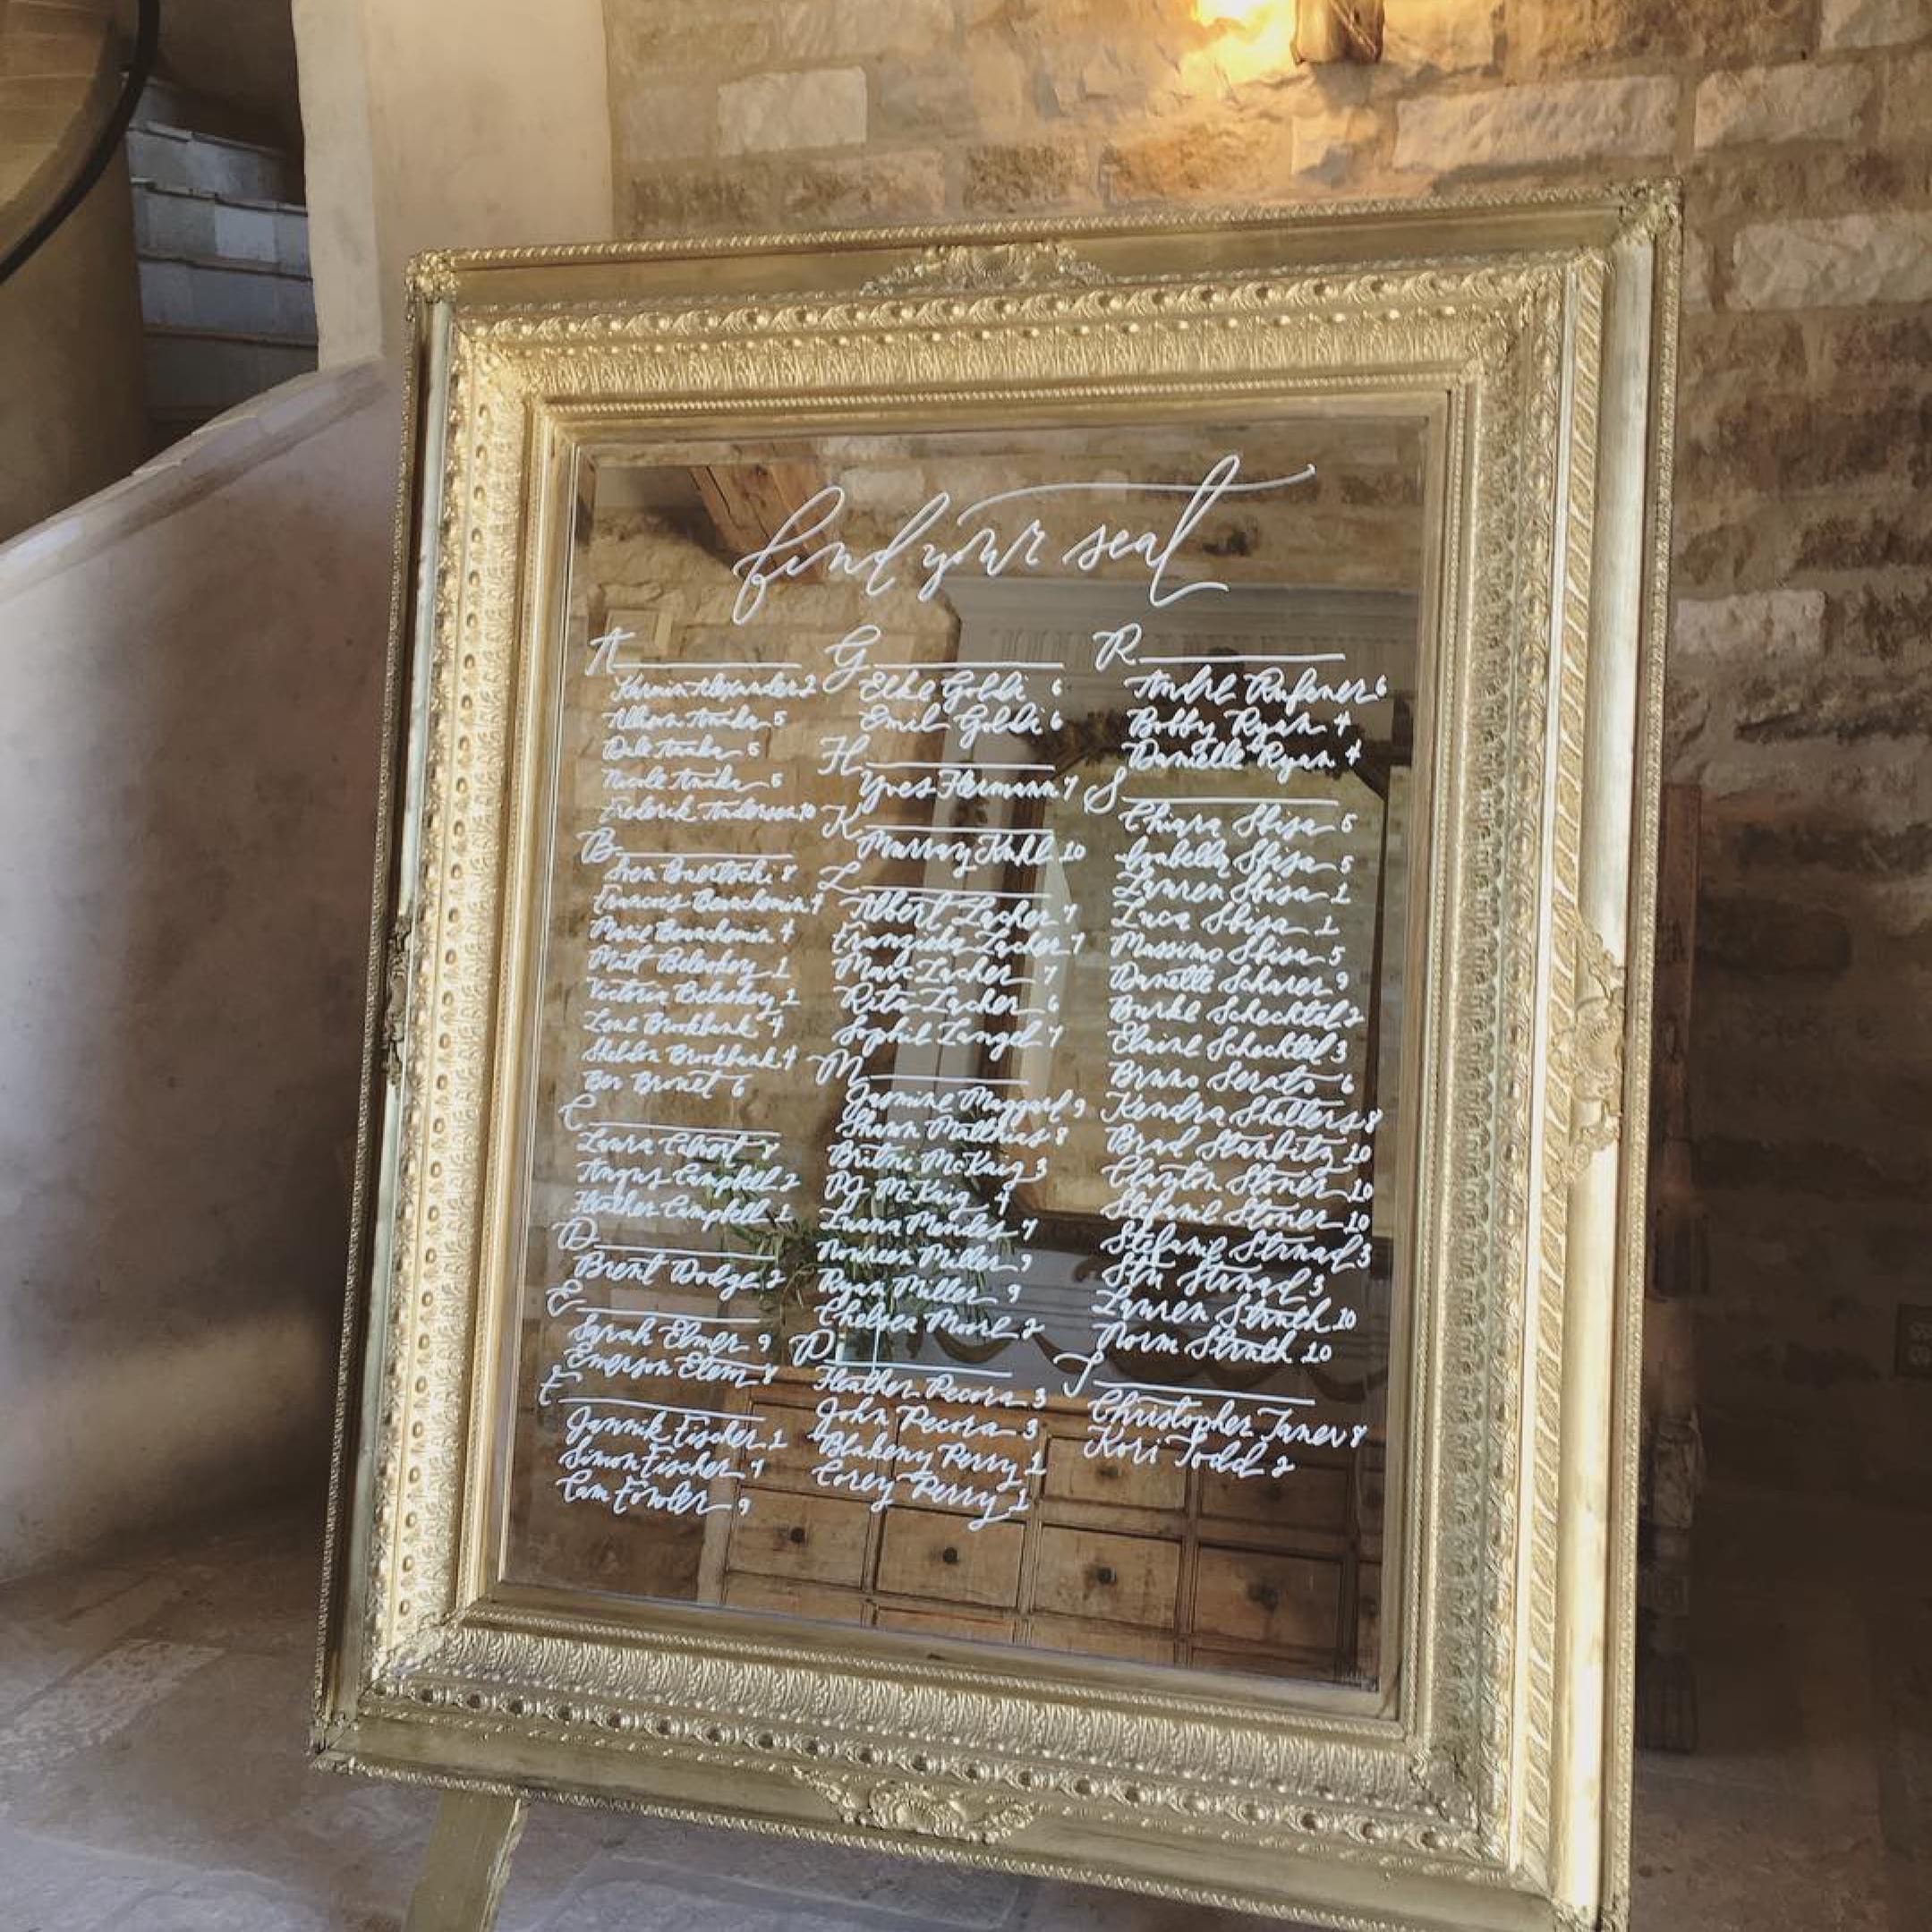 find your seat
A
Karmin Alexander 2
Allison Amaka 5
Dale Amaka 5
Nicole Amaka 5
Frederik Andersen 10
B
Sven Baertschi 8
Francois Beauchemin 4
Marie Beauchemin 4
Matt Beleskey 1
Victoria Beleskey 1
Lene Brookbank 4
Sheldon Brookbank 4
Ben Bronet 6
C
Laura Calvert 8
Angus Campbell 2
Heather Campbell 1
D
Brent Dodge 2
E
Sarah Elmer 9
Emerson Etem 8
F
Jannik Fischer 1
Simon Fischer 7
Cam Fowler 9
G
Elke Goldi 6
Emil Goldi 6
H
Yves Hermann 7
K
Murray Kuhl 10
L
Albert Lacher 7
Franziska Lacher 7
Marc Lacher 7
Rita Lacher 6
Sophie Langel 7
M
Jasmine Maggard 9
Shawn Matthias 8
Britni McKaig 3
PJ McKaig 4
Luana Mendes 7
Noureen Miller 9
Ryan Miller 9
Chelsea Moore 2
P
Heather Pecora 3
John Pecora 3
Blakeny Perry 1
Corey Perry 1
R
Andre Rufener 6
Bobby Ryan 4
Danielle Ryan 4
S
Chiara Sbisa 5
Isabella Sbisa 5
Lauren Sbisa 1
Luca Sbisa 1
Massimo Sbisa 5
Danette Scharer 9
Burke Schechtel 2
Elaine Schechtel 3
Bruno Serato 6
Kendra Shetlers 8
Brad Stanbitz 10
Clayton Stoner 10
Stefanie Stoner 10
Stefanie Strnad 3
Stu Strnad 3
Lauren Struth 10
Norm Struth 10
T
Christopher Taner 8
Kori Todd 2